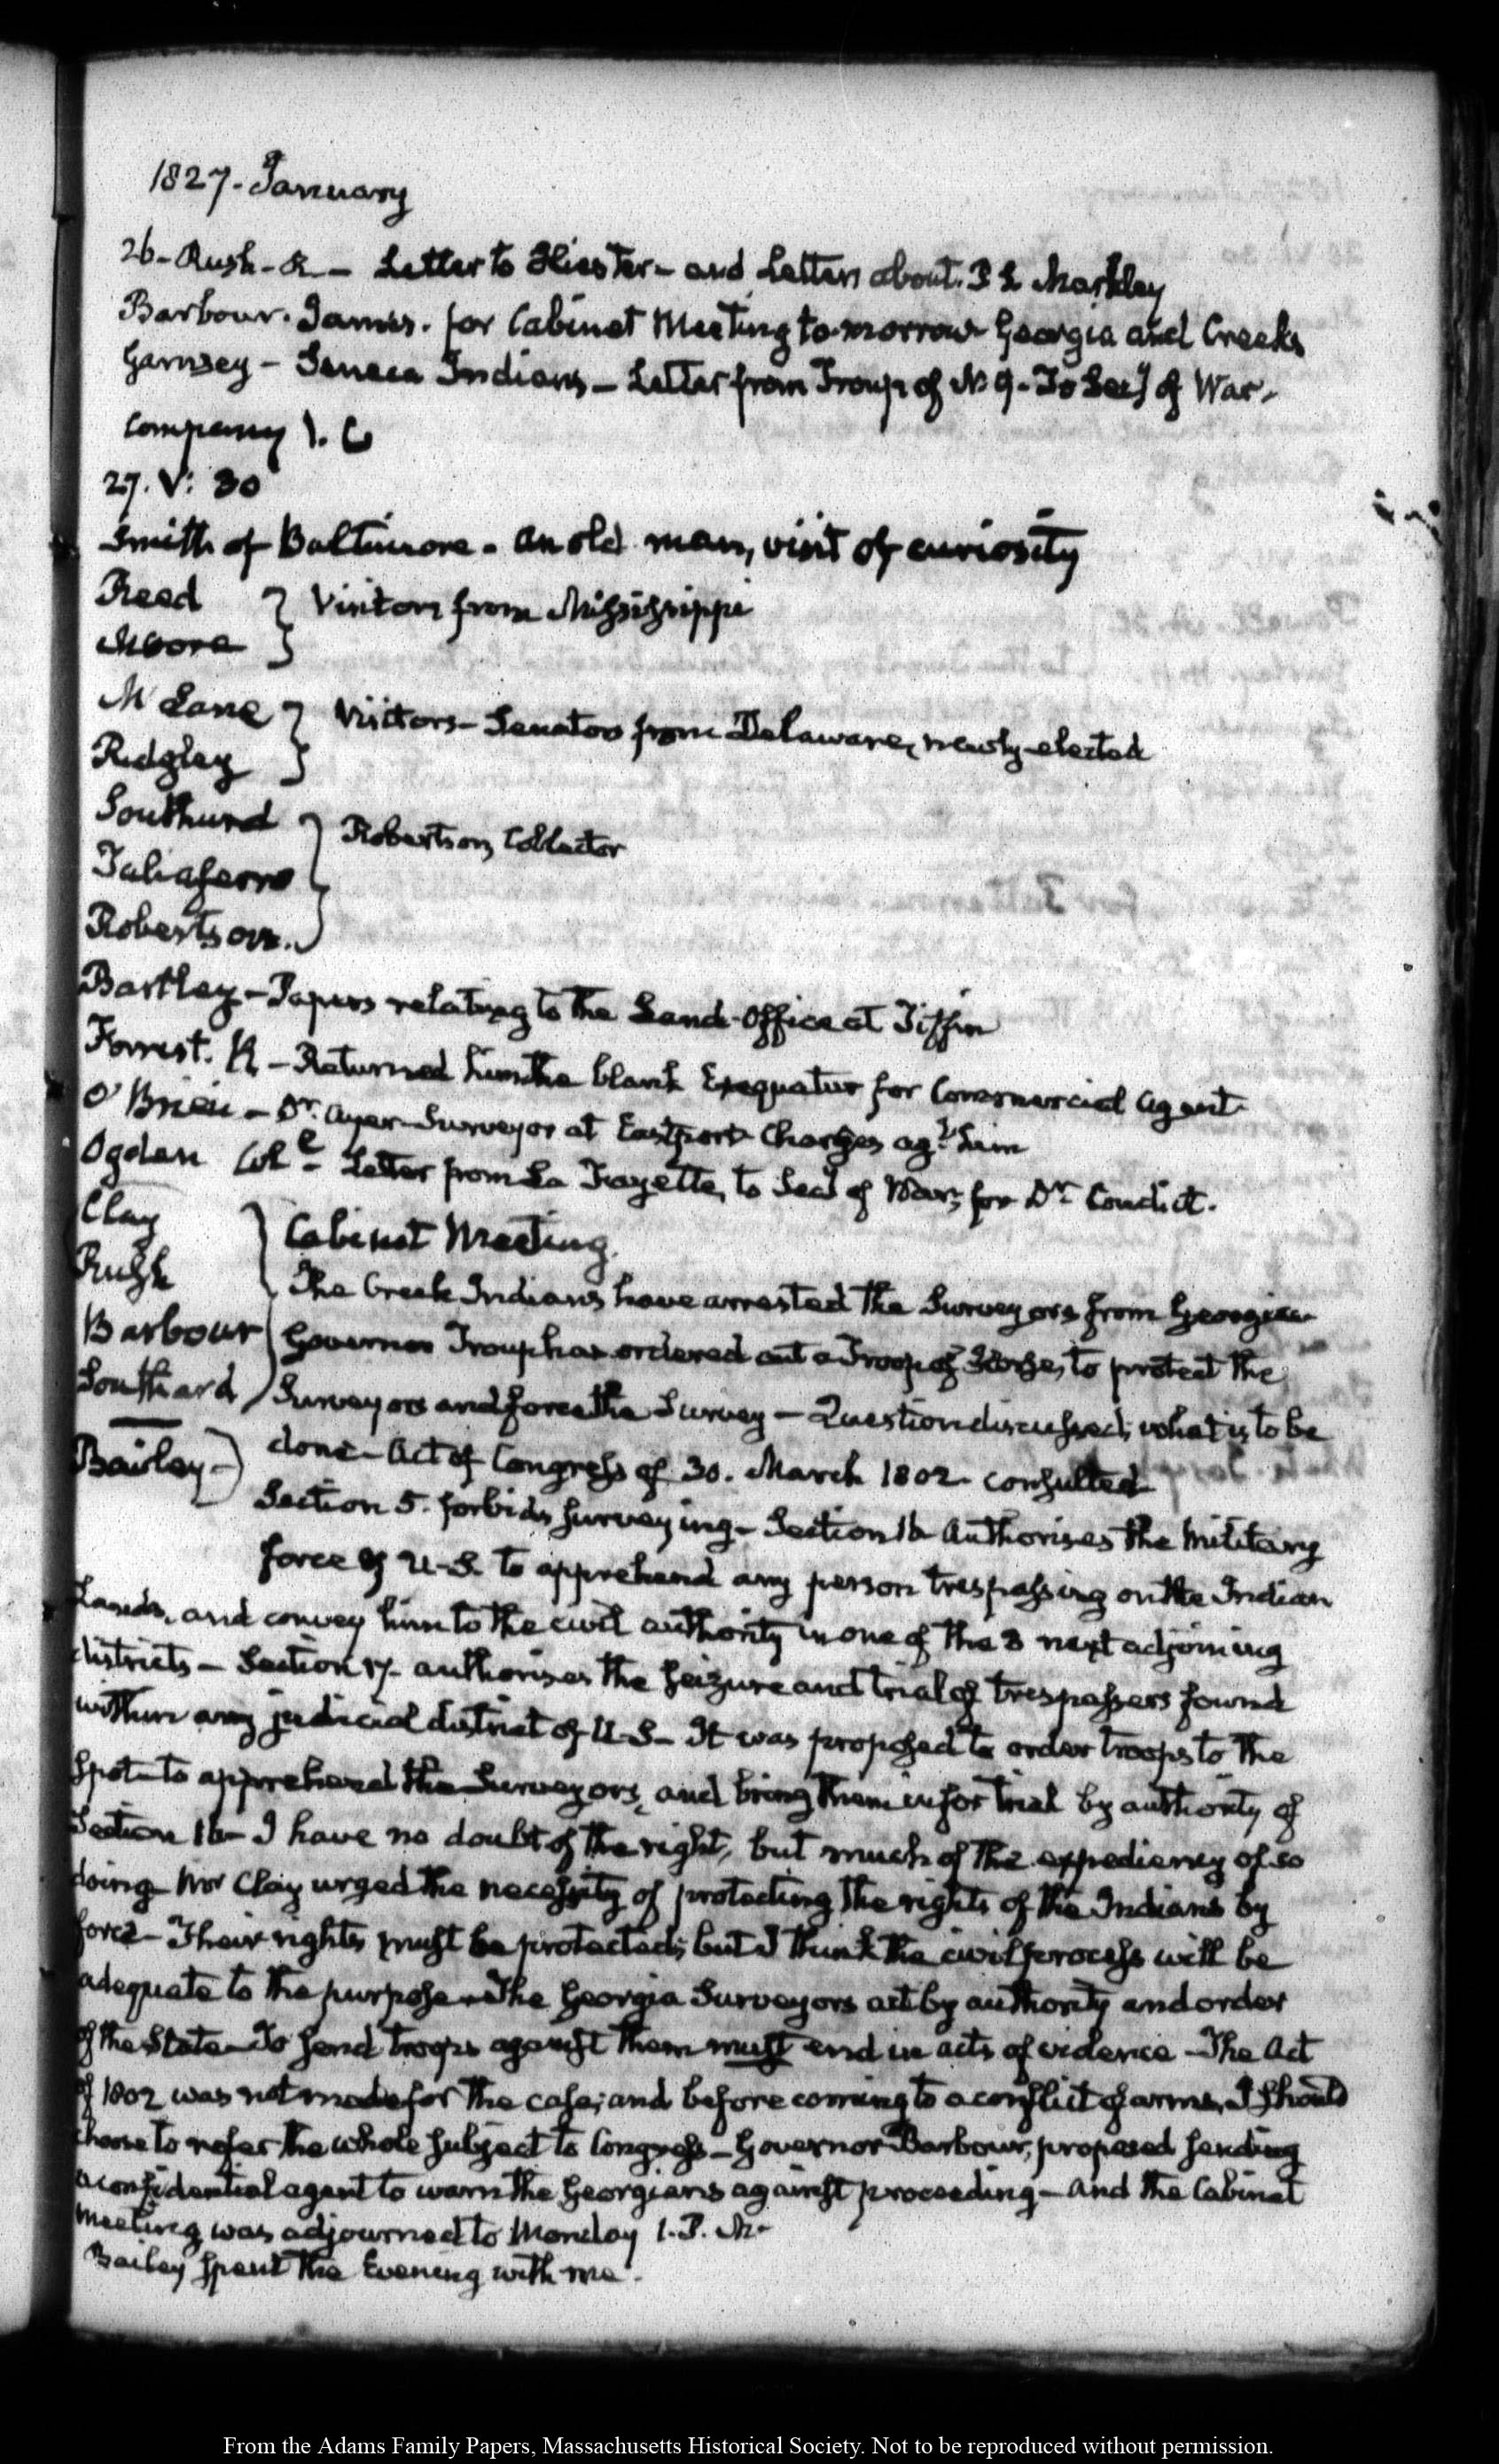 1827. January
26- Rush- R — Letter to Hiester- and Letters about P S Markley
Barbour. James. for Cabinet Meeting to-morrow Georgia and Creeks
Garnsey - Seneca Indians — Letter from Troup of N. Y- To Secy of War.
Company
27. V: 30
Smith of Baltimore. an old man, visit of curiosity
Reed } Visitors from Mississippi
Moore }
McLane } Visitors- Senators from Delaware, newly elected
Ridgley }
Southard } Robertson, Collector
Taliaferro
Robertson. }
Bartley - Papers relating to the Land-Office at Tiffin
Forrest. R - Returned him the blank Exequatur for Commercial Agent
O'Brien - Dr. Ayer- Surveyor at Eastport- Charges agt. him
Ogden Coll - Letter from La Fayette, to Secy of War, for Dr Condict.
Clay } Cabinet Meeting.
Rush The Creek Indians have arrested the Surveyors from Georgia
Barbour Governor Troup has ordered out a Troop of Horse, to protect the
Southard } Surveyors and force the Survey — Question discussed, what is to be
Bailey- } done - Act of Congress of 30. March 1802 consulted
Section 5. forbids surveying- Section 16 Authorises the military
force of U.S. to apprehend any person trespassing on the Indian
Lands, and convey him to the civil authority in one of the 3 next adjoining
districts — Section 17- authorises the seizure and trial of trespassers found
within any judicial district of U-S- It was proposed to order troops to the
spot to apprehend the Surveyors, and bring them in for trial by authority of
Section 16- I have no doubt of the right, but much of the expediency of so
doing- Mr Clay urged the necessity of protecting the rights of the Indians by
force - Their rights must be protected; but I think the civil process will be
adequate to the purpose - The Georgia Surveyors act by authority and order
of the State - To send troops against them must end in acts of violence - The Act
of 1802 was not made for the case; and before coming to a conflict of arms, I should
choose to refer the whole subject to Congress - Governor Barbour, proposed sending
a confidential agent to warn the Georgians against proceeding — and the Cabinet
Meeting was adjourned to Monday 1. P. M-
Bailey spent the Evening with me.
From the Adams Family Papers, Massachusetts Historical Society. Not to be reproduced without permission.